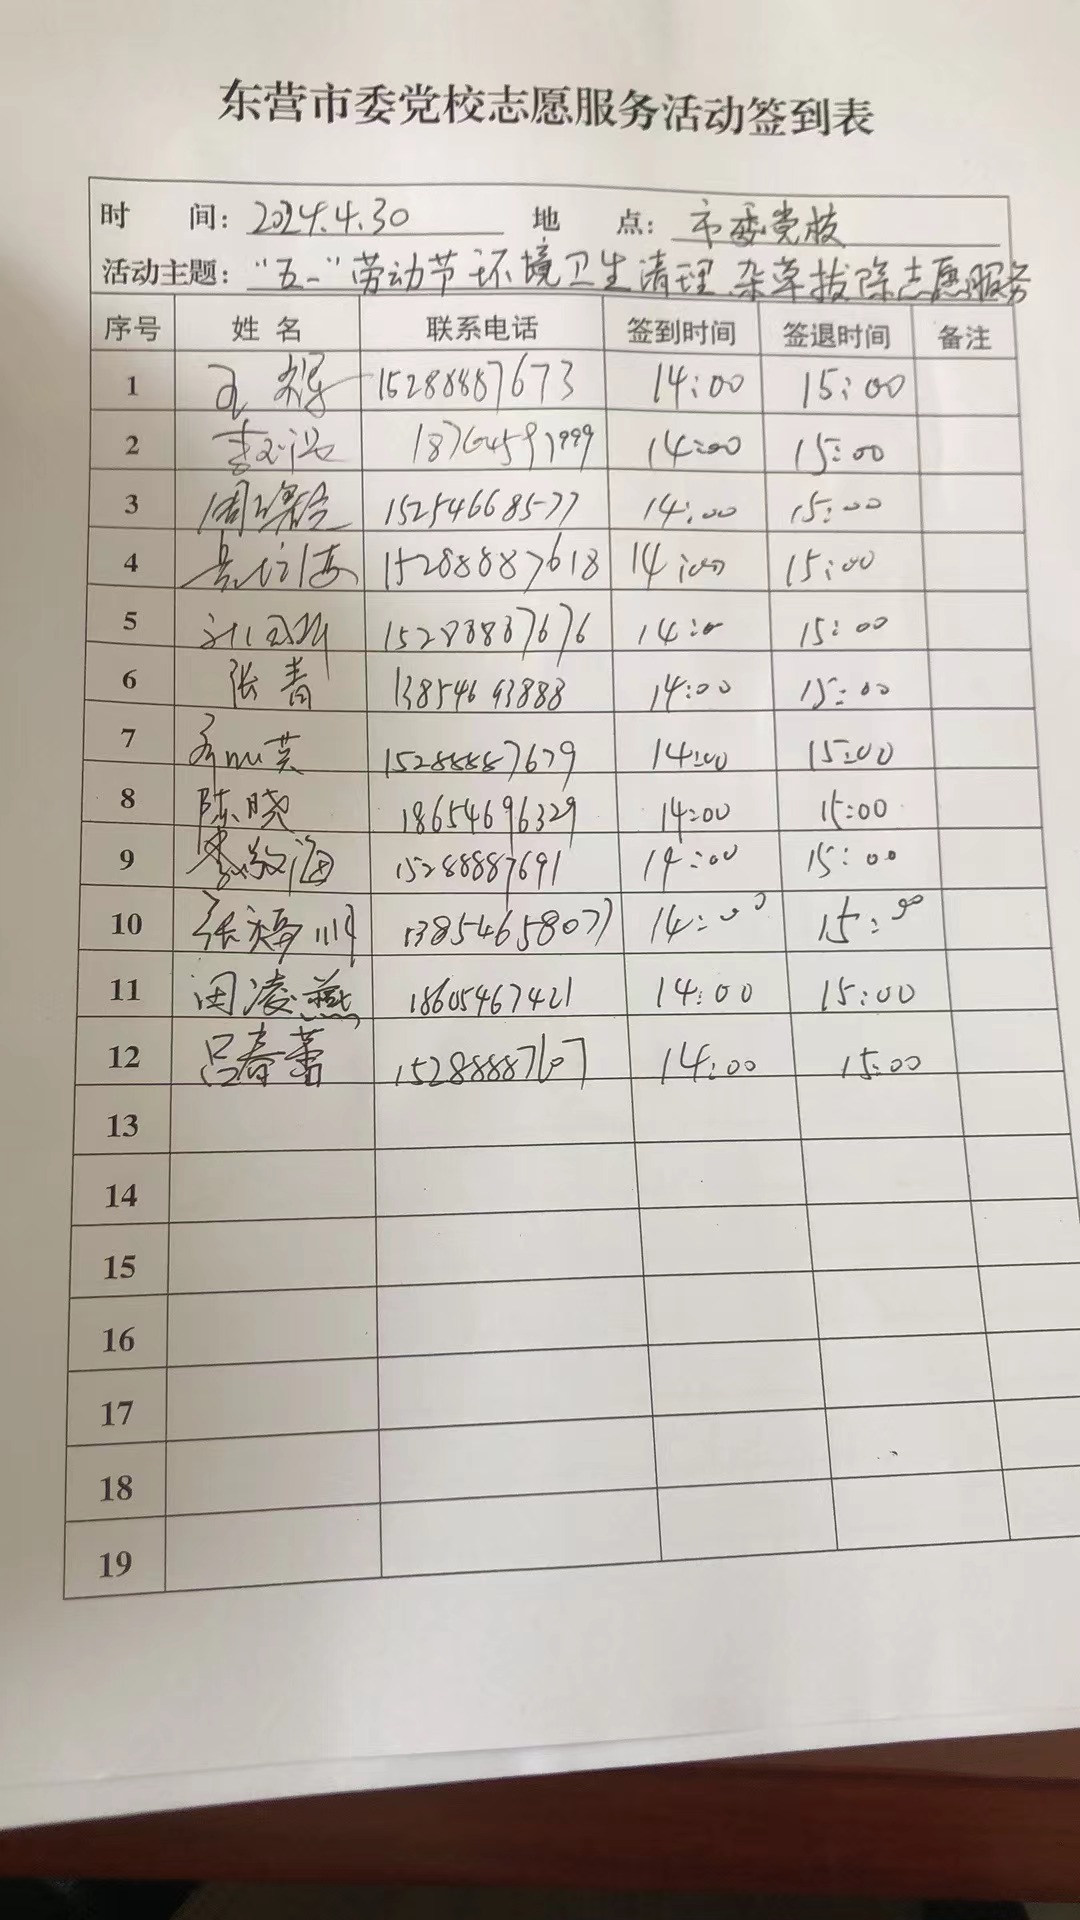 东营市委党校志愿服务活动签到表
时 间: 2024.4.30 地 点: 市委党校
活动主题: “五一”劳动节环境卫生清理、杂草拔除志愿服务
序号 姓名 联系电话 签到时间 签退时间 备注
1 15288887673 14:00 15:00
2 14:00 15:00
3 15254668577 14:00 15:00
4 15288887618 14:00 15:00
5 15288887676 14:0 15:00
6 张青 13854693888 14:00 15:00
7 15288887679 14:00 15:00
8 陈晓 18654696329 14:00 15:00
9 李敬海 15288887691 14:00 15:00
10 张福川 13854658077 14:00 15:00
11 田凌燕 18605467421 14:00 15:00
12 吕春蕾 15288887607 14:00 15:00
13
14
15
16
17
18
19